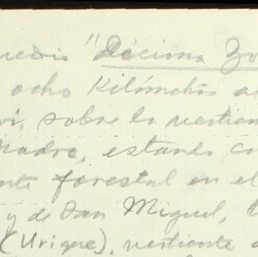 "Décima Zo
ocho Kilómetros a
i, sobre la vertien
adre, estando co
nte forestal en el
y de San Miguel,
(Urique), vertiente